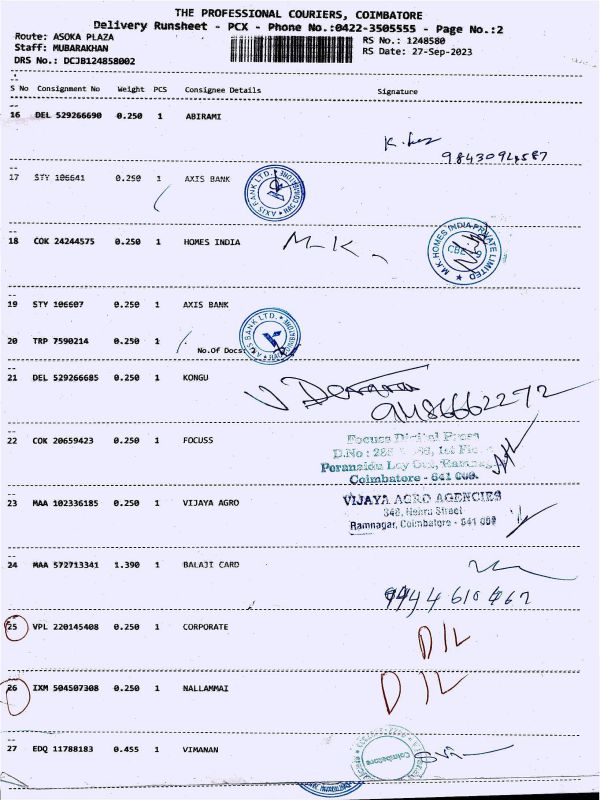 THE PROFESSIONAL COURIERS, COIMBATORE
Delivery Runsheet - PCX - Phone No.:0422-3505555 - Page No.:2
Route: ASOKA PLAZA
RS No.: 1248580
Staff: MUBARAKHAN
RS Date: 27-Sep-2023
DRS No.: DCJB124858002
S No Consignment No Weight PCS Consignee Details Signature
16 DEL 529266690 0.250 1 ABIRAMI
9843094587
17 STY 106641 0.250 1 AXIS BANK
AXIS BANK LTD.
18 COK 24244575 0.250 1 HOMES INDIA M-K.
M.K. HOMES INDIA PRIVATE LIMITED
19 STY 106607 0.250 1 AXIS BANK
AXIS BANK LTD.
20 TRP 7590214 0.250 1
No.Of Docs:
21 DEL 529266685 0.250 1 KONGU
9486662272
22 COK 20659423 0.250 1 FOCUSS
Focuss Digital Press
D.No : 1st
Coimbatore - 641 009.
23 MAA 102336185 0.250 1 VIJAYA AGRO
VIJAYA AGRO AGENCIES
Nehru Street
Ramnagar, Coimbatore - 641 009
24 MAA 572713341 1.390 1 BALAJI CARD
25 VPL 220145408 0.250 1 CORPORATE D/L
26 IXM 504507308 0.250 1 NALLAMMAI D/L
27 EDQ 11788183 0.455 1 VIMANAN
Coimbatore